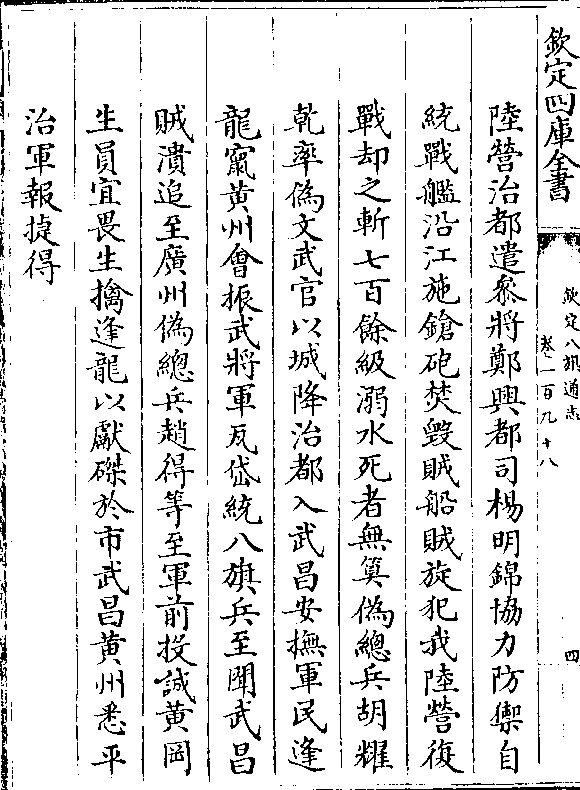 欽定四庫全書
欽定八旗通志
卷二百九十八
四
陸營治都遣叅將鄭興都司楊明錦協力防禦自
統戰艦沿江施鎗砲焚毀賊船賊旋犯我陸營復
戰却之斬七百餘級溺水死者無算偽總兵胡耀
乾率偽文武官以城降治都入武昌安撫軍民逢
龍竄黃州會振武將軍瓦岱統八旗兵至聞武昌
賊潰追至廣州偽總兵趙得等至軍前投誠黃岡
生員宜畏生擒逢龍以獻磔於市武昌黃州悉平
治軍報㨗得